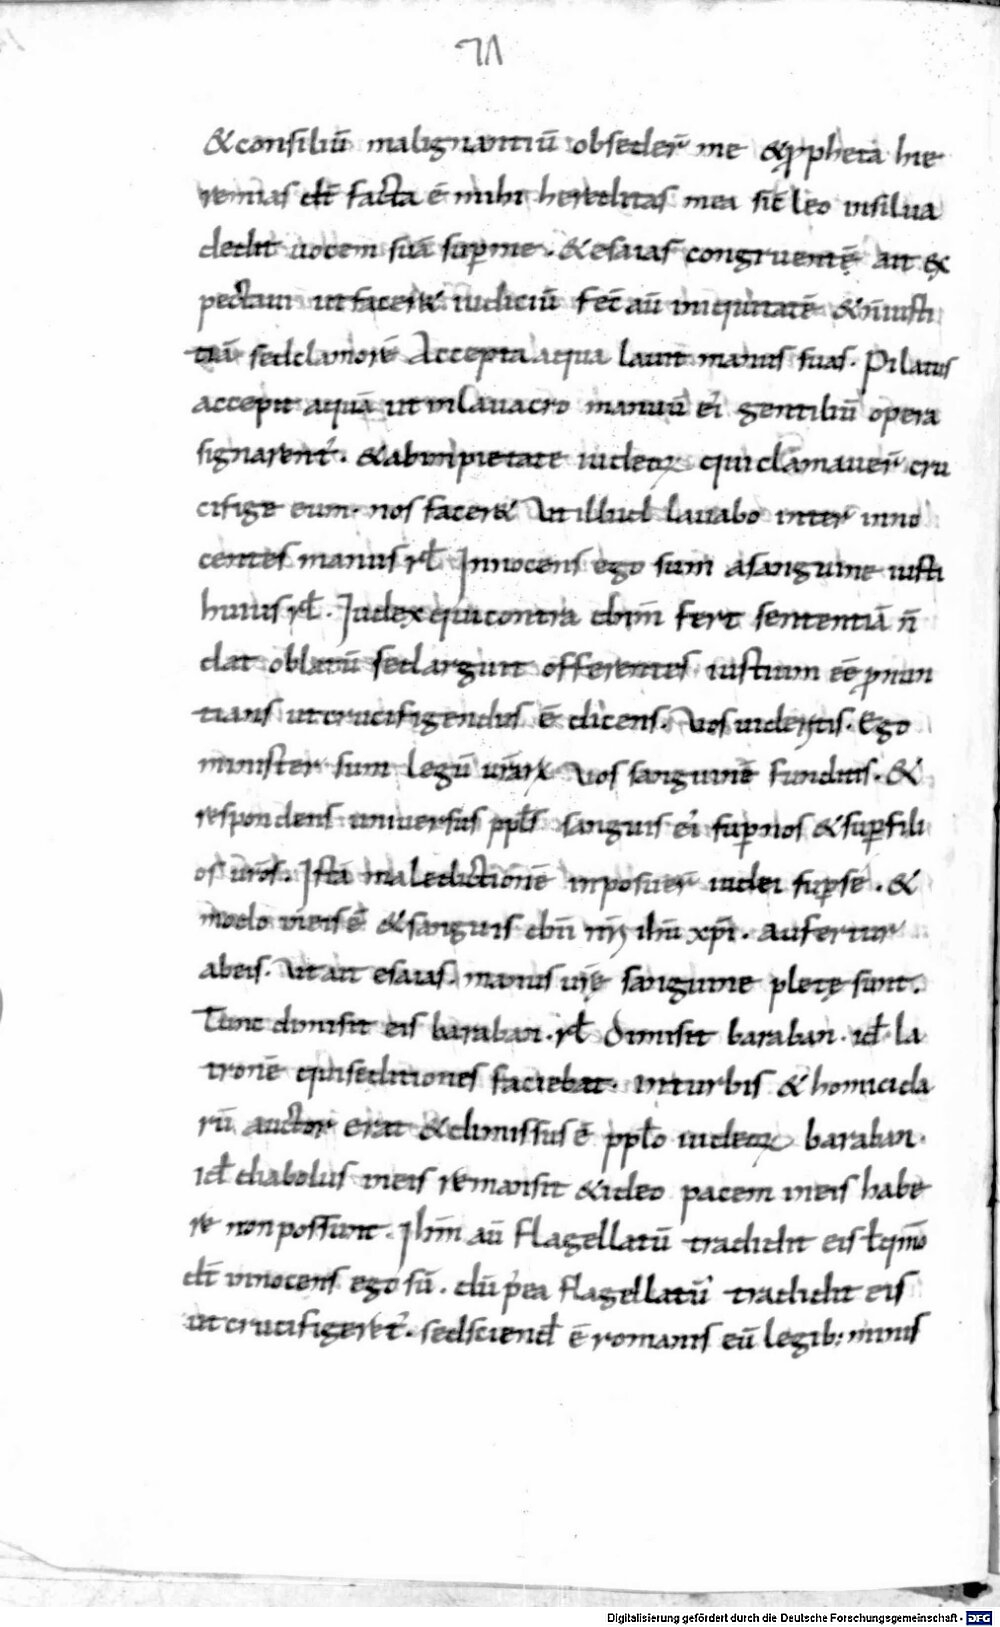 &consiliū malignantiū obseder̄ me &ꝓpheta hie
remias dī facta ē mihi hereditas mea sic̄ leo insilua
dedit uocem suā suꝑme. &esaias congruentę̄ ait ex
pectaui utfacer& iudiciū fec̄ aū iniquitatē &n̄iusti
tiā sedclamorē Accepta aqua lauit manus suas. Pilatus
accepit aquā ut inlauacro manuū ei' gentiliū opera
signarent'. &abimpietate iudeoꝝ quiclamauer̄ cru
cifige eum. nos facer& Ut illud lauabo inter inno
centes manus rł Innocens ego sum asanguine iusti
huius rł. Judex quicontra dnm̄ fert sententiā n̄
dat oblatū sedarguit offerentes iustum eē ꝓnun
tians utcrucifigendus ē dicens. Uos uideritis. Ego
minister sum legū ur̄aꝝ Uos sanguinē funditis. &
respondens uniuersus ppłs sanguis ei' suꝑnos &suꝑfili
os ur̄os. Istā maledictionē inposuer̄ iudei suꝑse. &
modo ineis ē &sanguis dnī nr̄i ihū xp̄i. aufertur
abeis. Ut ait esaias. manus ur̄ę sanguine plenę sunt.
Tunc dimisit eis baraban. rł Dimisit baraban. id̄. la
tronē quiseditiones faciebat. inturbis & homicida
rū auctor erat &dimissus ē ppło iudeoꝝ baraban.
id̄ diabolus ineis remansit &ideo pacem ineis habe
re nonpossunt. Ihm̄ aū flagellatū tradidit eis ł qm̄o
dī innocens ego sū. cū p'ea flagellatū' tradidit eis
utcrucifigeret'. sedsciend̄ ē romanis eū legib; minis
Digitalisierung gefördert durch die Deutsche Forschungsgemeinschaft - DFG